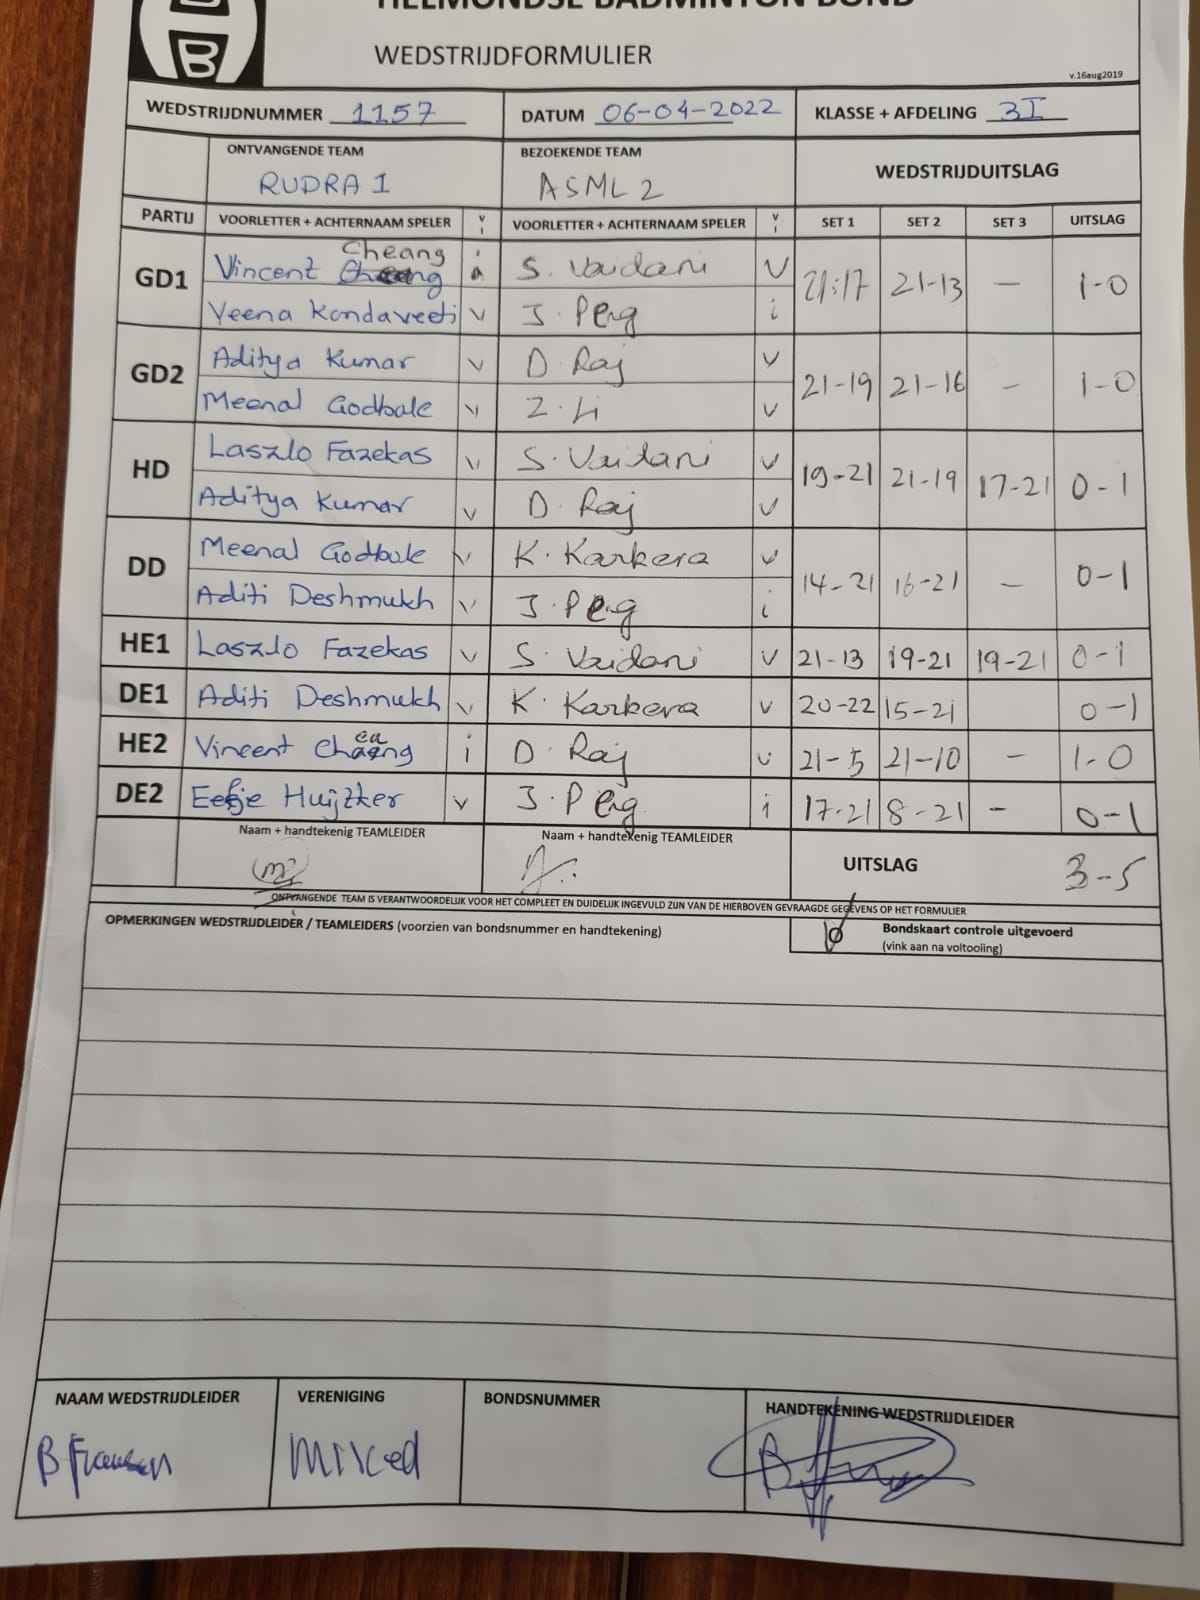 HELMONDSE BADMINTON BOND
B
WEDSTRIJDFORMULIER
v.16aug2019
WEDSTRIJDNUMMER 1157 DATUM 06-04-2022 KLASSE + AFDELING 3I
ONTVANGENDE TEAM BEZOEKENDE TEAM WEDSTRIJDUITSLAG
RUDRA 1 ASML 2
PARTIJ VOORLETTER + ACHTERNAAM SPELER V I VOORLETTER + ACHTERNAAM SPELER V I SET 1 SET 2 SET 3 UITSLAG
GD1 Vincent Cheang S. Vaidani V 21-17 21-13 — 1-0
Veena Kondaveeti V J. Peng i
GD2 Aditya Kumar V D. Raj V 21-19 21-16 — 1-0
Meenal Godbole V Z. Li V
HD Laszlo Fazekas V S. Vaidani V 19-21 21-19 17-21 0-1
Aditya Kumar V D. Raj V
DD Meenal Godbole V K. Karkera V 14-21 16-21 — 0-1
Aditi Deshmukh V J. Peng i
HE1 Laszlo Fazekas V S. Vaidani V 21-13 19-21 19-21 0-1
DE1 Aditi Deshmukh V K. Karkera V 20-22 15-21 0-1
HE2 Vincent Cheang i D. Raj V 21-5 21-10 — 1-0
DE2 Eefje Huijzker V J. Peng i 17-21 8-21 — 0-1
Naam + handtekenig TEAMLEIDER Naam + handtekenig TEAMLEIDER UITSLAG 3-5
ONTVANGENDE TEAM IS VERANTWOORDELIJK VOOR HET COMPLEET EN DUIDELIJK INGEVULD ZIJN VAN DE HIERBOVEN GEVRAAGDE GEGEVENS OP HET FORMULIER
OPMERKINGEN WEDSTRIJDLEIDER / TEAMLEIDERS (voorzien van bondsnummer en handtekening) Bondskaart controle uitgevoerd
(vink aan na voltooiing)
NAAM WEDSTRIJDLEIDER VERENIGING BONDSNUMMER HANDTEKENING WEDSTRIJDLEIDER
B Fransen Mixed